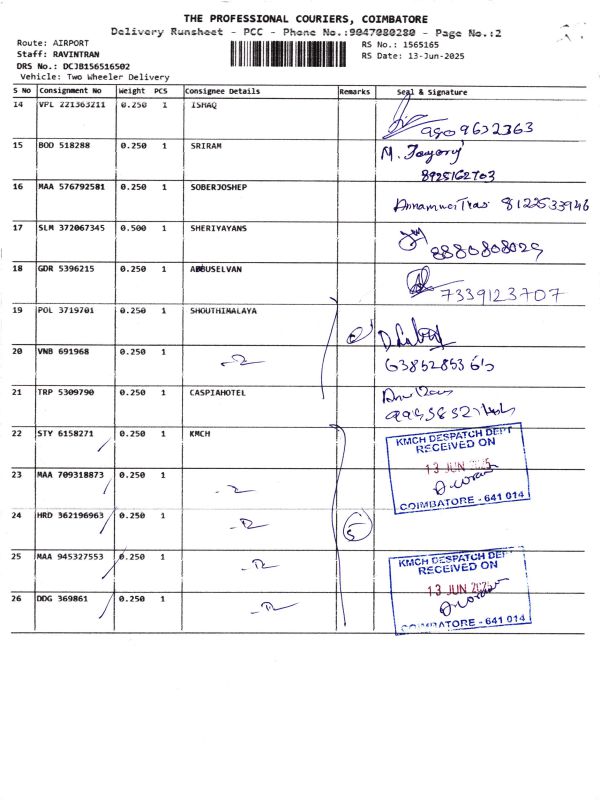 THE PROFESSIONAL COURIERS, COIMBATORE
Delivery Runsheet - PCC - Phone No.:9047080280 - Page No.:2
Route: AIRPORT
Staff: RAVINTRAN
DRS No.: DCJB156516502
Vehicle: Two Wheeler Delivery
RS No.: 1565165
RS Date: 13-Jun-2025
S No Consignment No Weight PCS Consignee Details Remarks Seal & Signature
14 VPL 221363211 0.250 1 ISHAQ
9909632363
15 BOD 518288 0.250 1 SRIRAM M.
8925162703
16 MAA 576792581 0.250 1 SOBERJOSHEP 8122533946
17 SLM 372067345 0.500 1 SHERIYAYANS
8880808029
18 GDR 5396215 0.250 1 ABBUSELVAN
7339123707
19 POL 3719701 0.250 1 SHOUTHIMALAYA
20 VNB 691968 0.250 1
21 TRP 5309790 0.250 1 CASPIAHOTEL
22 STY 6158271 0.250 1 KMCH
KMCH DESPATCH DEPT
RECEIVED ON
13 JUN 2025
COIMBATORE - 641 014
23 MAA 709318873 0.250 1
24 HRD 362196963 0.250 1 5
25 MAA 945327553 0.250 1
KMCH DESPATCH DEPT
RECEIVED ON
13 JUN 2025
COIMBATORE - 641 014
26 DDG 369861 0.250 1